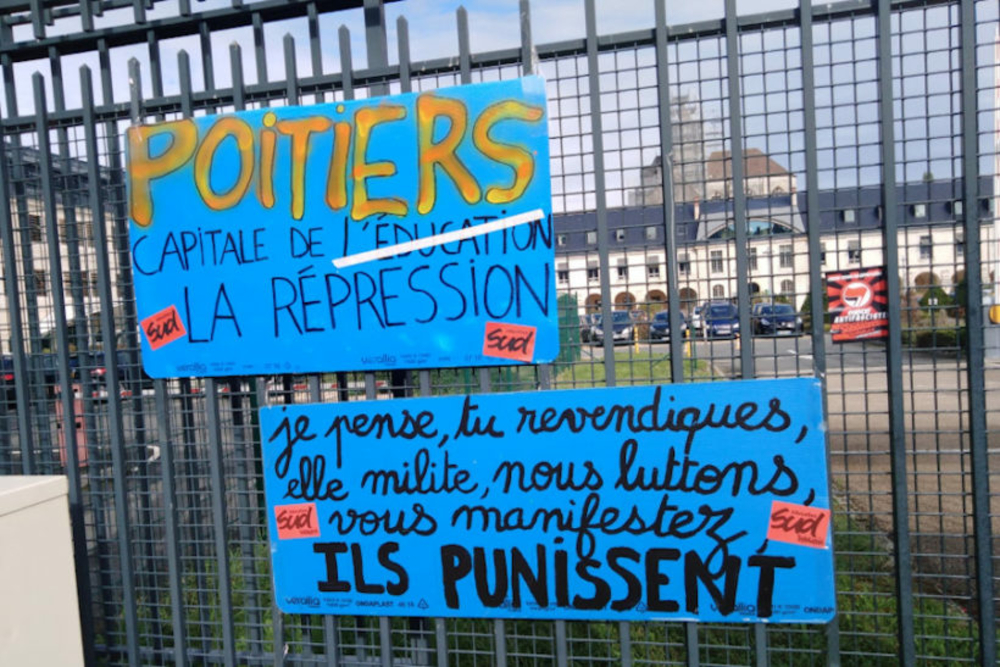 POITIERS
CAPITALE DE L'ÉDUCATION
LA RÉPRESSION
Sud
Sud
veralia
veralia
je pense, tu revendiques,
elle milite, nous luttons,
vous manifestez,
ILS PUNISSENT
Sud
Sud
ONDAPLAST
ONDAP
ANTIFASCISTE